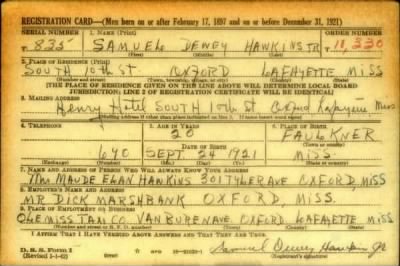 REGISTRATION CARD—(Men born on or after February 17, 1897 and on or before December 31, 1921)
SERIAL NUMBER 1. NAME (Print) ORDER NUMBER
T 835 SAMUEL DEWEY HAWKINS JR 11,330
2. PLACE OF RESIDENCE (Print)
SOUTH 10th ST OXFORD LAFAYETTE MISS
(Number and street) (Town, township, village, or city) (County) (State)
[THE PLACE OF RESIDENCE GIVEN ON THE LINE ABOVE WILL DETERMINE LOCAL BOARD
JURISDICTION; LINE 2 OF REGISTRATION CERTIFICATE WILL BE IDENTICAL]
3. MAILING ADDRESS
Henry Hotel SOUTH 10th ST Oxford Lafayette Miss
4. TELEPHONE 5. AGE IN YEARS 6. PLACE OF BIRTH
20 FAULKNER
DATE OF BIRTH
640 SEPT. 24 1921 MISS
(Exchange) (Number) (Mo.) (Day) (Yr.) (State or country)
7. NAME AND ADDRESS OF PERSON WHO WILL ALWAYS KNOW YOUR ADDRESS
MRS MAUDE EGAN HAWKINS 301 TYLER AVE OXFORD, MISS
8. EMPLOYER'S NAME AND ADDRESS
MR DICK MARSHBANK OXFORD, MISS.
9. PLACE OF EMPLOYMENT OR BUSINESS
OLE MISS TAXI CO VAN BUREN AVE OXFORD LAFAYETTE MISS
(Number and street or R. F. D. number) (Town) (County) (State)
I AFFIRM THAT I HAVE VERIFIED ABOVE ANSWERS AND THAT THEY ARE TRUE.
D. S. S. Form 1
(Revised 1-1-42) Samuel Dewey Hawkins Jr